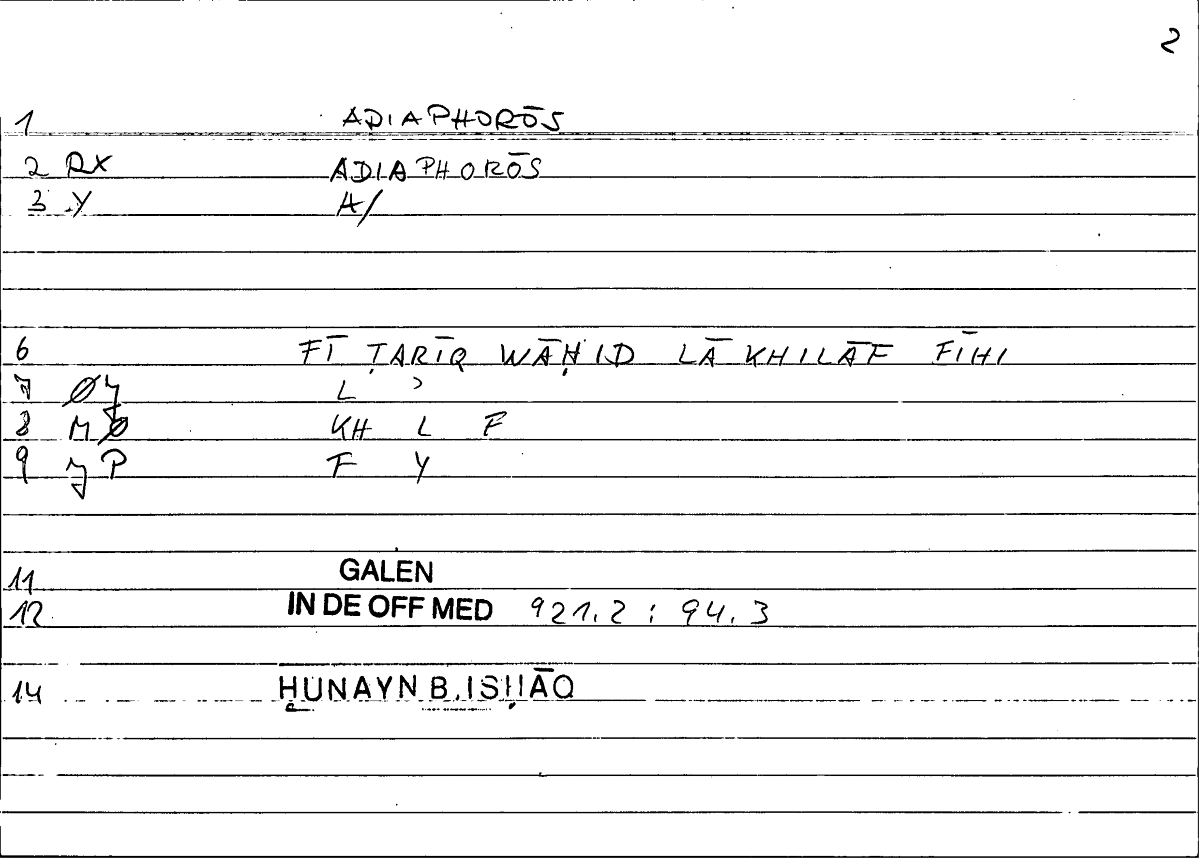 2
1 ADIAPHORŌS
2 RX ADIAPHORŌS
3 Y A/
6 FĪ ṬARĪQ WĀḤID LĀ KHILĀF FĪHI
7 L ʾ
8 M KH L F
9 P F Y
11 GALEN
12 IN DE OFF MED 921.2 : 94.3
14 ḤUNAYN B. ISḤĀQ